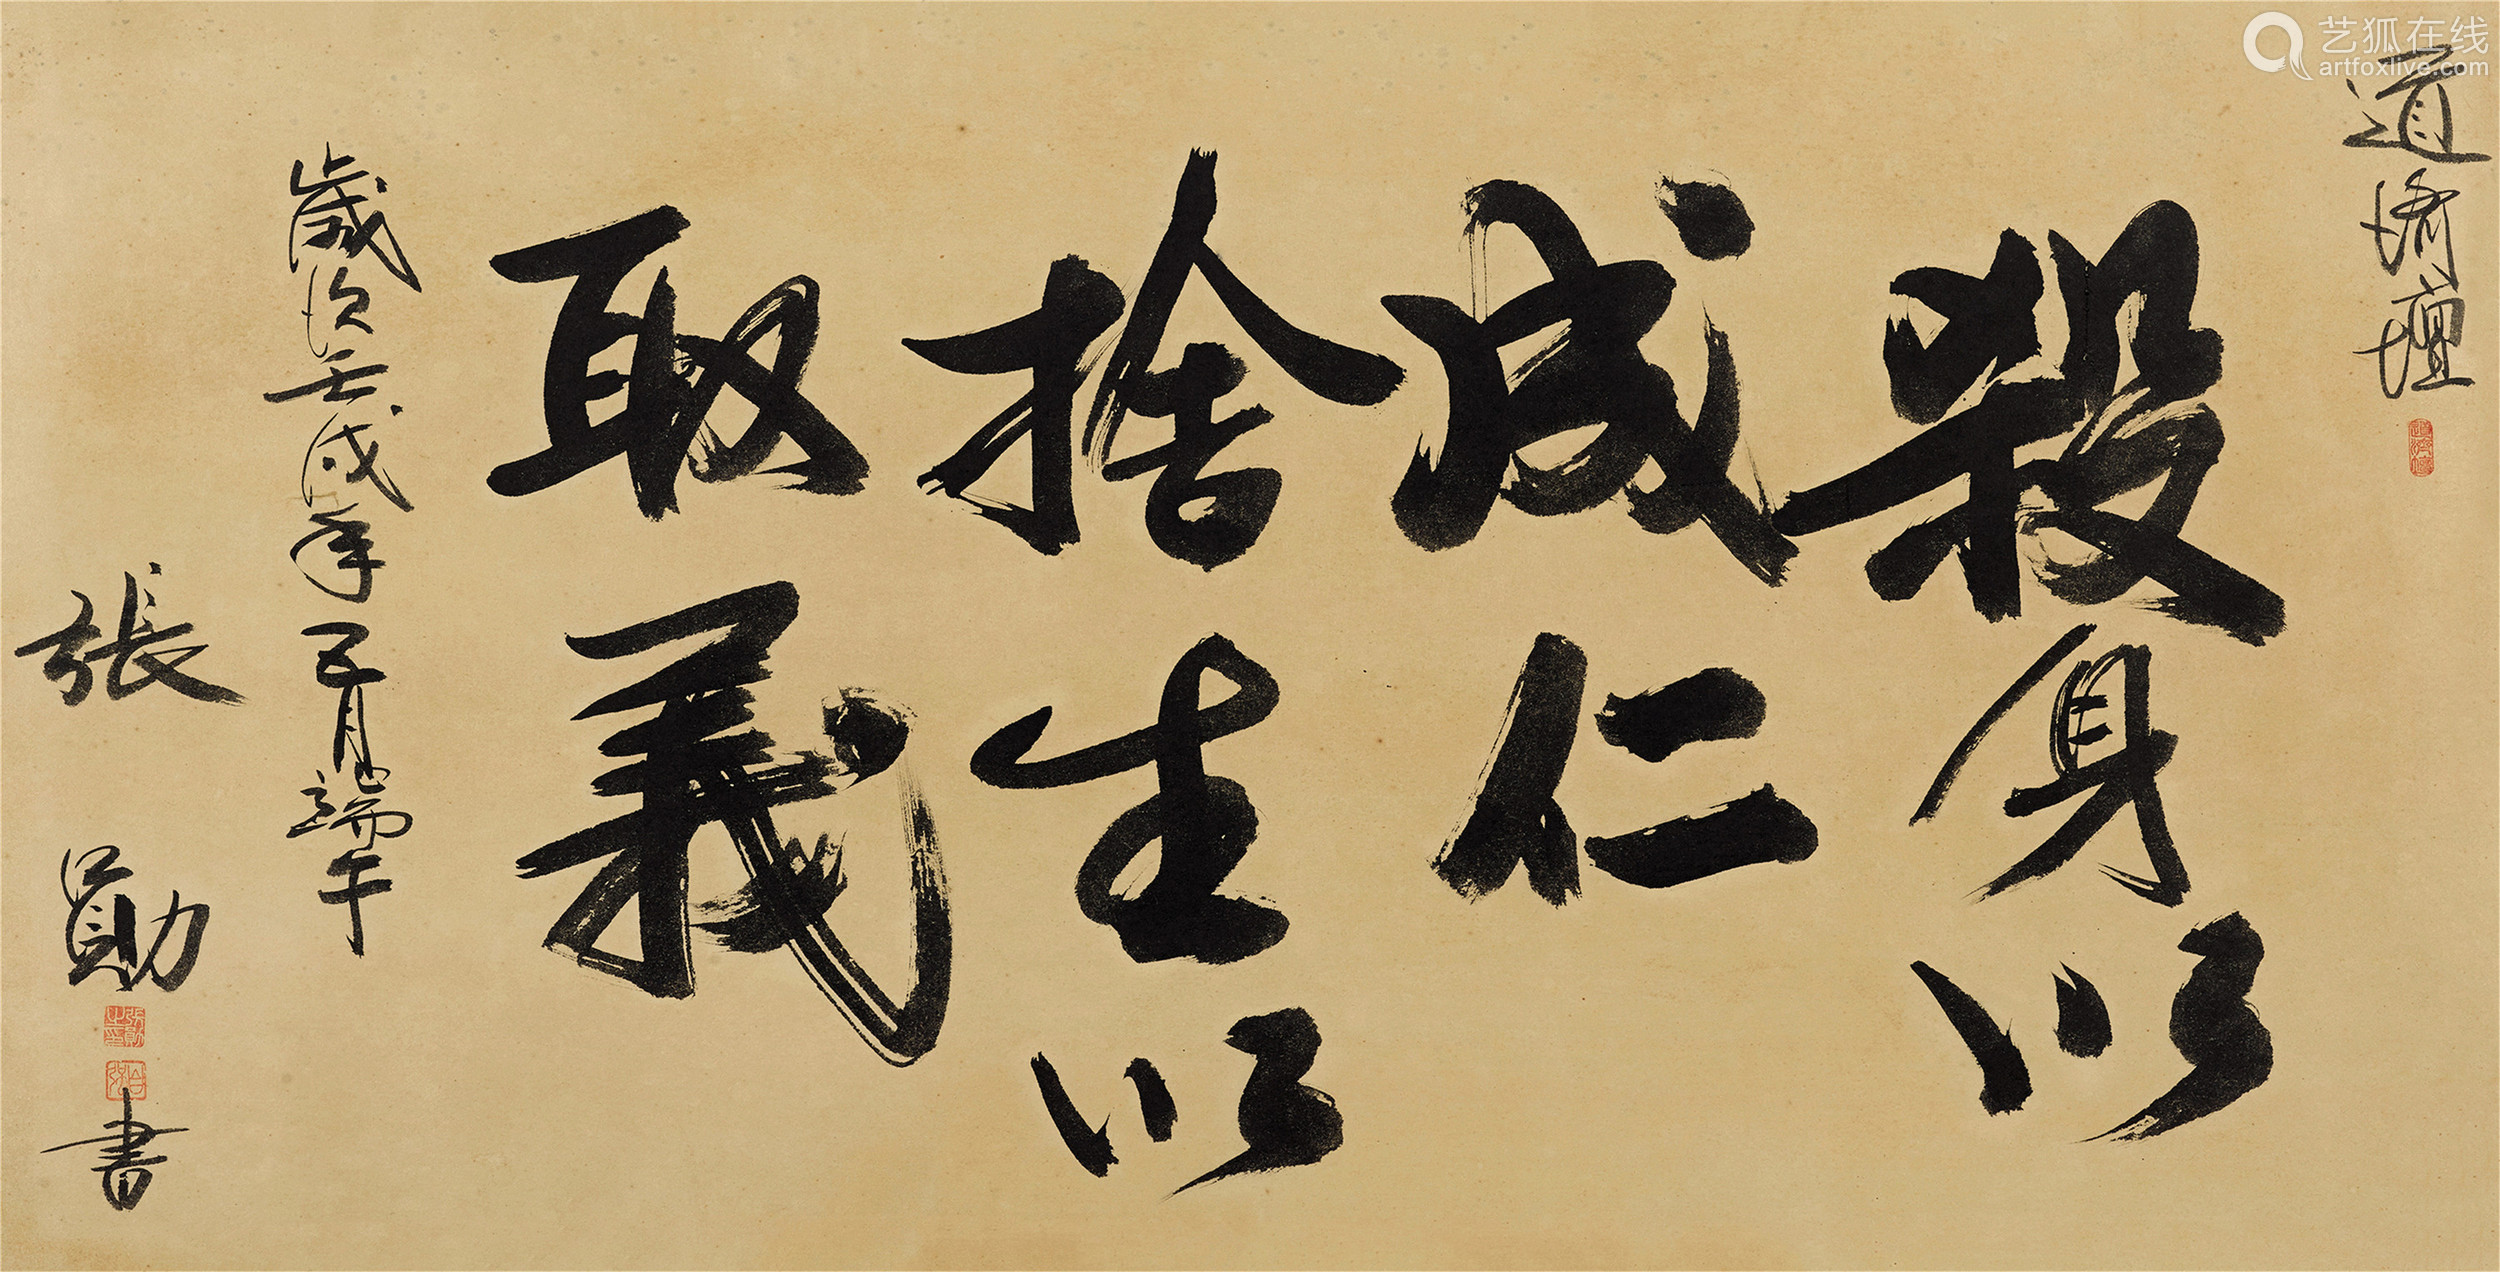 道濟壇
殺身以
成仁
捨生以
取義
歲次壬戌年五月端午
張勛書
張勛之印
艺狐在线
artfoxlive.com